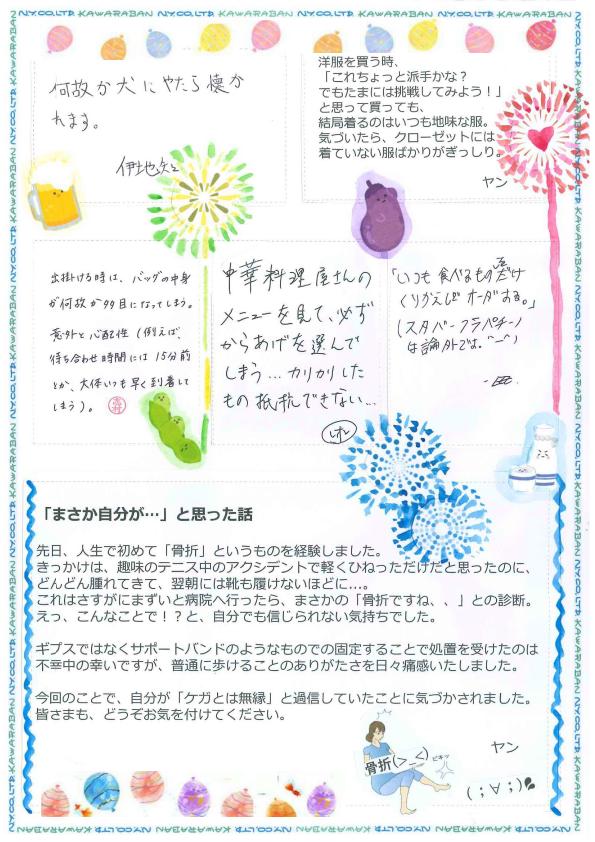 NY.CO.,LTD. KAWARABAN
何故か犬にやたら懐か
れます。
伊地知
洋服を買う時、
「これちょっと派手かな？
でもたまには挑戦してみよう！」
と思って買っても、
結局着るのはいつも地味な服。
気づいたら、クローゼットには
着ていない服ばかりがぎっしり。
ヤン
出掛ける時は、バッグの中身
が何故か多目になってしまう。
意外と心配性（例えば、
待ち合わせ時間には15分前
とか、大体いつも早く到着して
しまう）。
中華料理屋さんの
メニューを見て、必ず
からあげを選んで
しまう…カリカリした
もの抵抗できない…
「いつも食べるものだけ
くりかえしオーダする。」
（スタバーフラパチーノ
は論外では。^ー^）
「まさか自分が…」と思った話
先日、人生で初めて「骨折」というものを経験しました。
きっかけは、趣味のテニス中のアクシデントで軽くひねっただけだと思ったのに、
どんどん腫れてきて、翌朝には靴も履けないほどに…。
これはさすがにまずいと病院へ行ったら、まさかの「骨折ですね、、」との診断。
えっ、こんなことで！？と、自分でも信じられない気持ちでした。
ギプスではなくサポートバンドのようなものでの固定することで処置を受けたのは
不幸中の幸いですが、普通に歩けることのありがたさを日々痛感いたしました。
今回のことで、自分が「ケガとは無縁」と過信していたことに気づかされました。
皆さまも、どうぞお気を付けてください。
ヤン
骨折(>_<)
ピキッ
(；∀；)